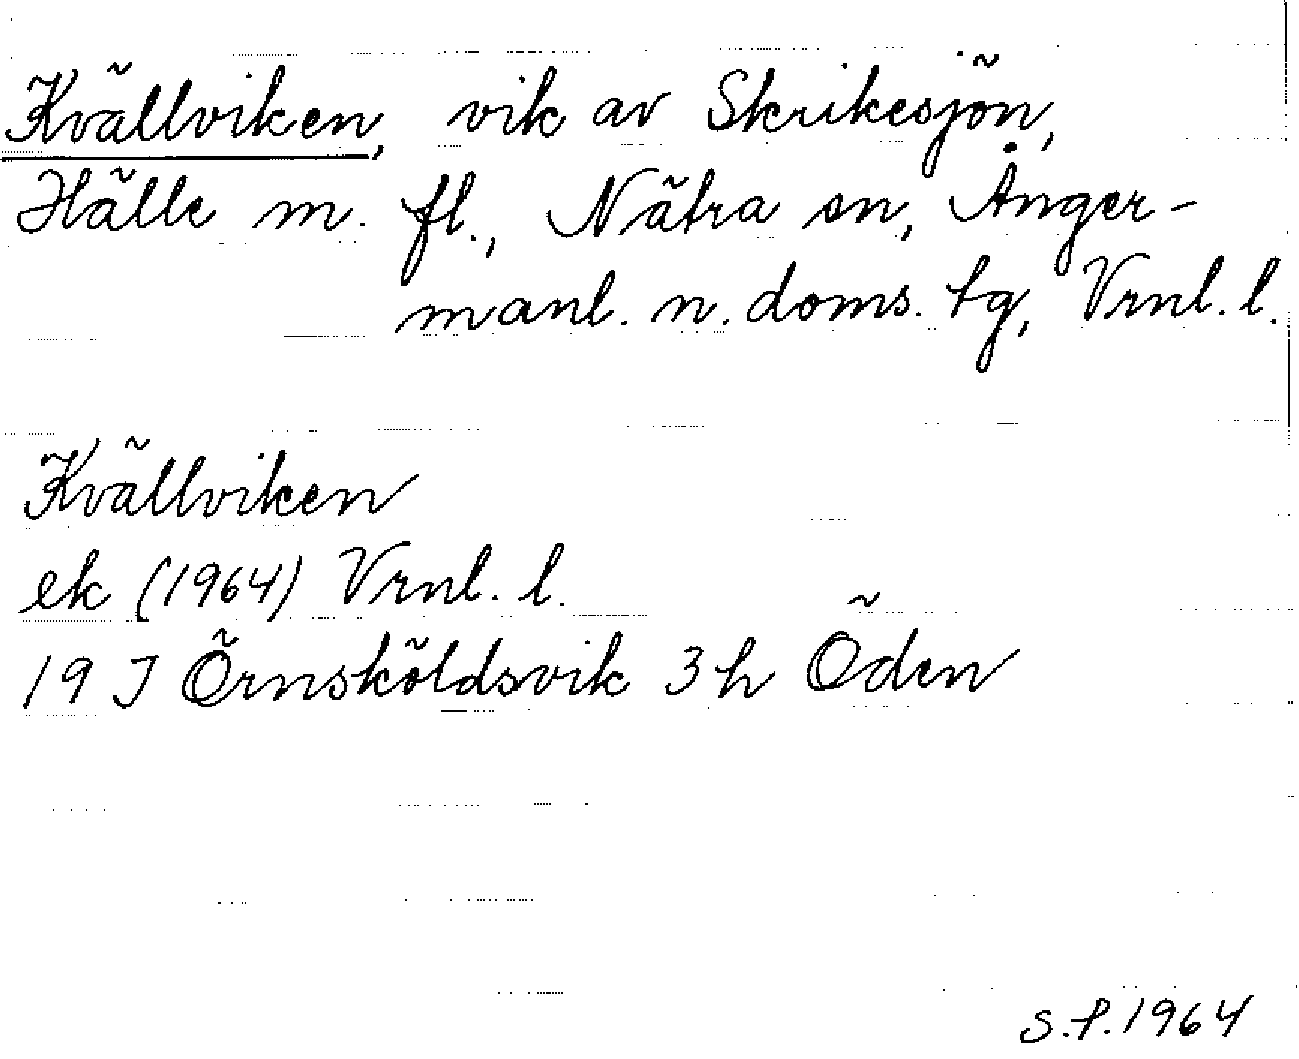 Kvällviken, vik av Skrikesjön,
Hälle m. fl., Nätra sn, Ånger-
manl. n. doms. tg, Vrnl. l.
Kvällviken
ek (1964) Vrnl. l.
19 J Örnsköldsvik 3 h Öden
S.P. 1964